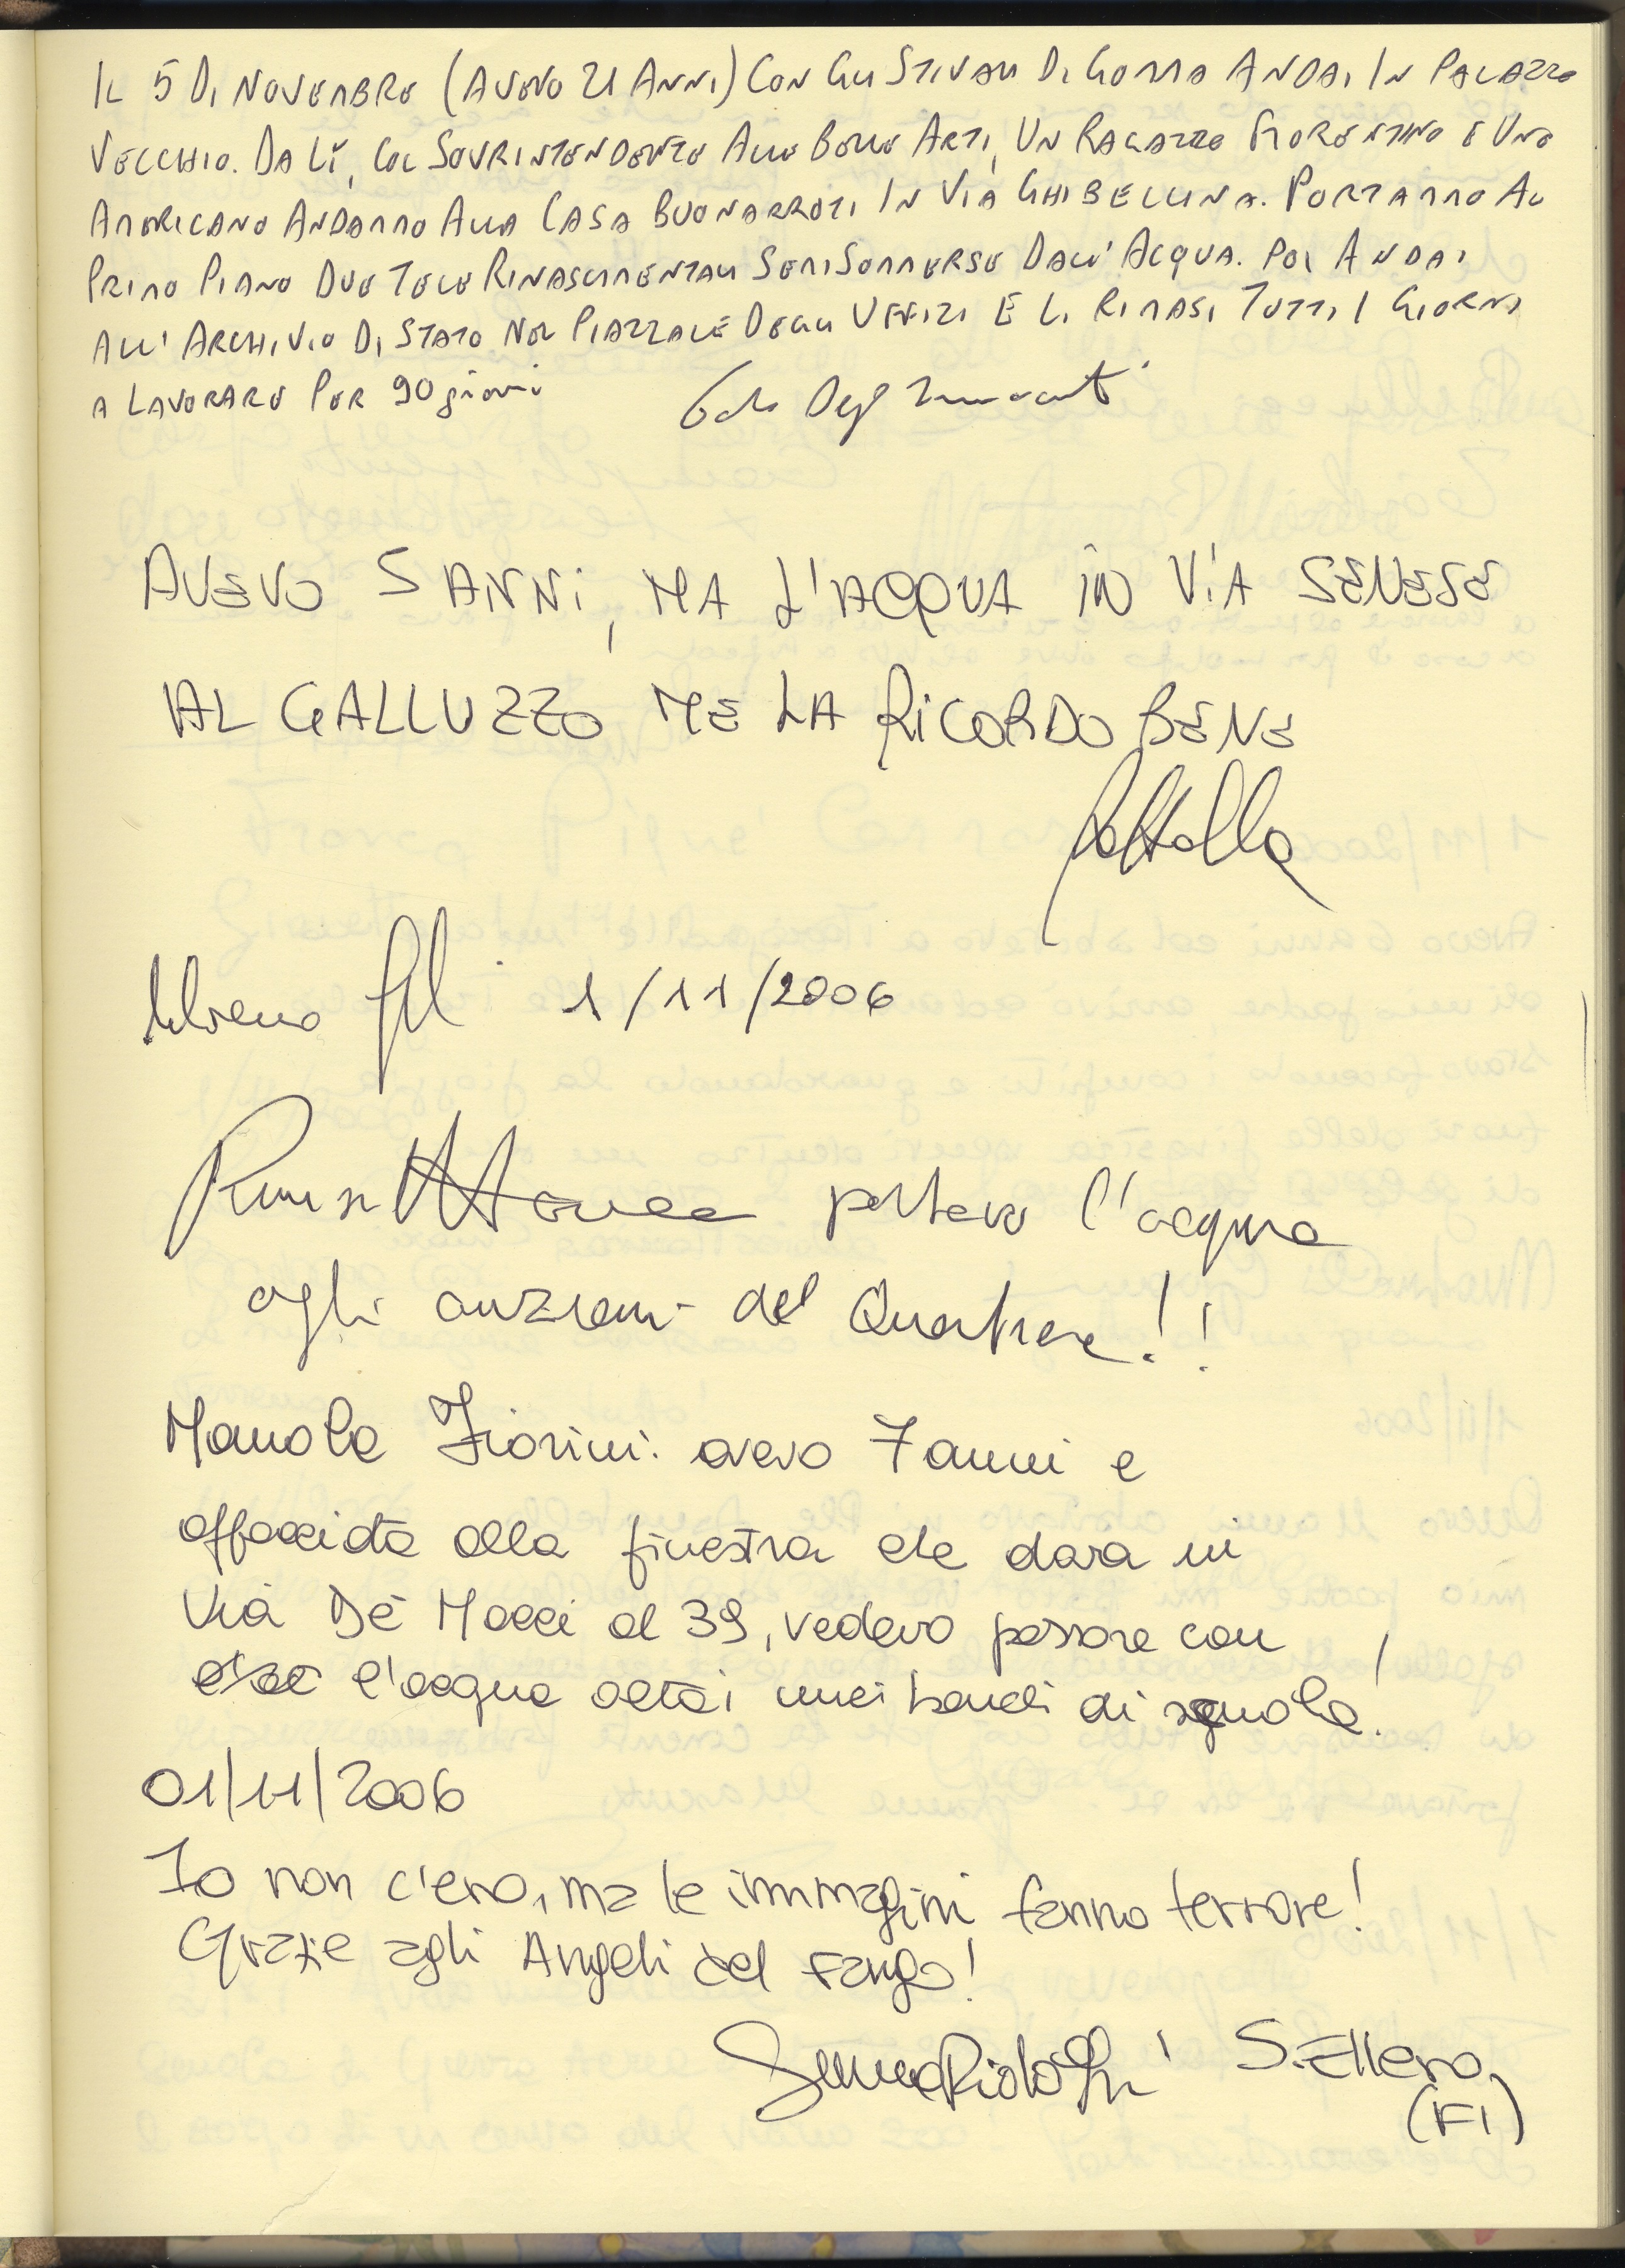 IL 5 DI NOVEMBRE (AVEVO 21 ANNI) CON GLI STIVALI DI GOMMA ANDAI IN PALAZZO
VECCHIO. DA LÌ, COL SOVRINTENDENTE ALLE BELLE ARTI, UN RAGAZZO FIORENTINO E UNO
AMERICANO ANDAMMO ALLA CASA BUONARROTI IN VIA GHIBELLINA. PORTAMMO AL
PRIMO PIANO DUE TELE RINASCIMENTALI SEMISOMMERSE DALL'ACQUA. POI ANDAI
ALL'ARCHIVIO DI STATO NEL PIAZZALE DEGLI UFFIZI E LI RIMASI TUTTI I GIORNI
A LAVORARE PER 90 giorni
Degl'Innocenti
AVEVO 5 ANNI, MA L'ACQUA IN VIA SENESE
AL GALLUZZO ME LA RICORDO BENE
1/11/2006
portavo l'acqua
agli anziani del Quartiere!!
Manola Fiorini: avevo 7 anni e
affacciata alla finestra che dava in
Via De' Macci al 39, vedevo passare con
l'acqua alta i miei banchi di scuola!
01/11/2006
Io non c'ero, ma le immagini fanno terrore!
Grazie agli Angeli del Fango!
Ridolfi S. Ellero
(FI)